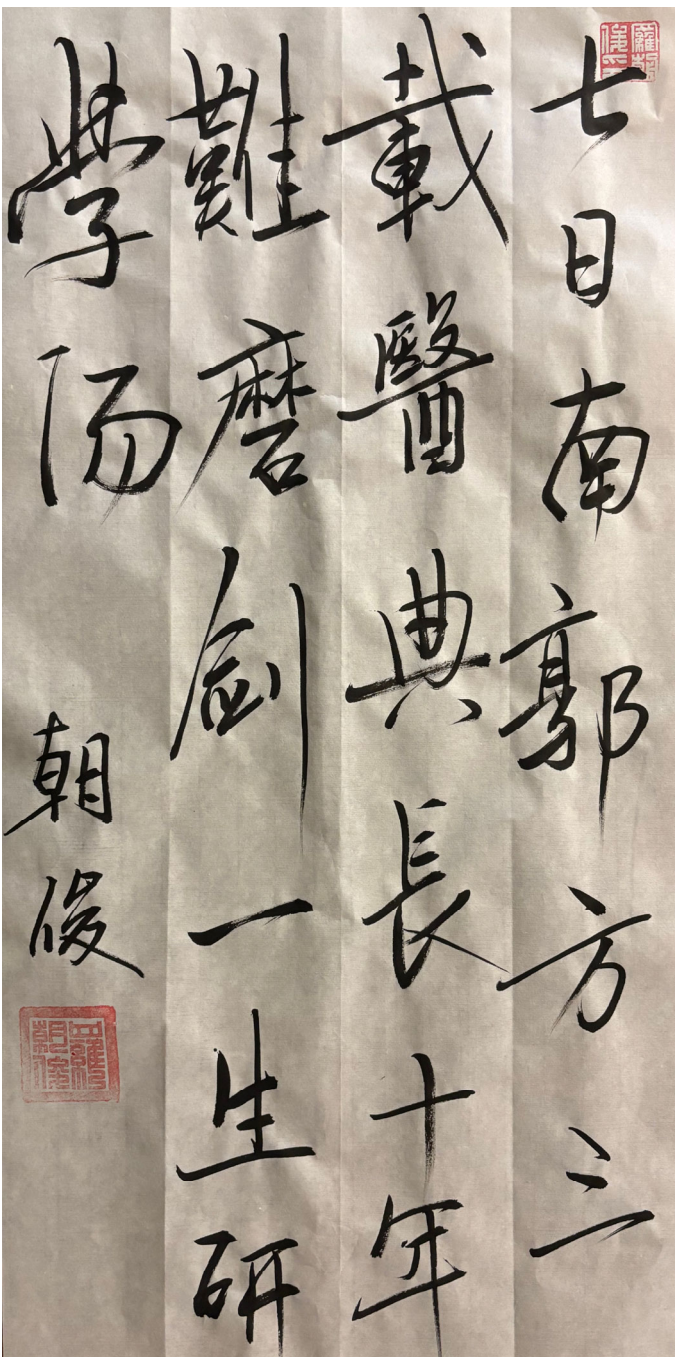 七日南郭方三
載醫典長十年
難磨劍一生研
學陽
朝俊